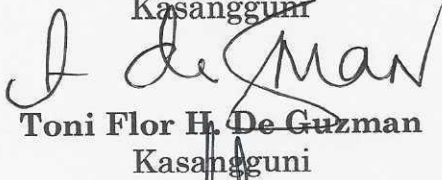 Kasangguni
Toni Flor H. De Guzman
Kasangguni